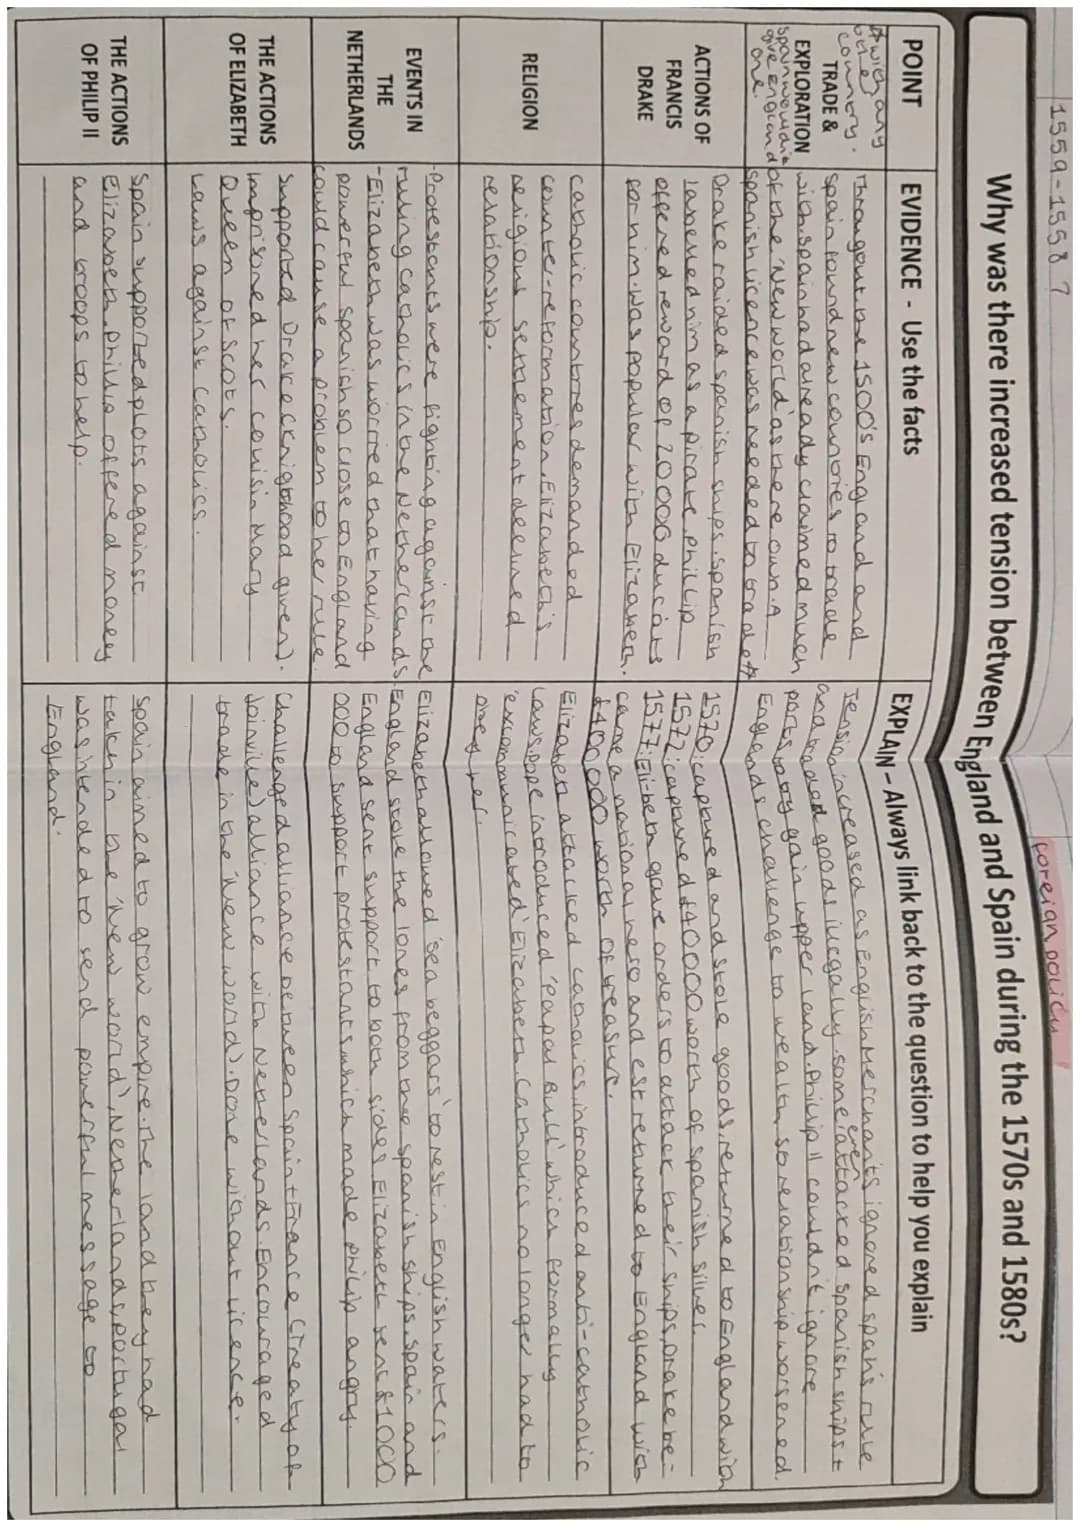 1559-1558 ?
foreign policy
Why was there increased tension between England and Spain during the 1570s and 1580s?
POINT
EVIDENCE - Use the facts
EXPLAIN – Always link back to the question to help you explain
# with any
other
country.
Spain wouldnt
give England
one.
TRADE &
EXPLORATION
Througout the 1500's England and
Spain found new countries to trade
with. Spain had already claimed much
of the 'New World' as there own. A
Spanish licence was needed to trade #
Tension increased as English Merchants ignored Spain's rule
and traded goods illegally. some even attacked Spanish ships +
ports to try gain upper land. Philip II couldn't ignore
England's challenge to wealth, so relationship worsened.
ACTIONS OF
FRANCIS
DRAKE
Drake raided spanish ships. spanish
labelled him as a pirate. Phillip
offered reward of 20000 ducats
for him. Was popular with Elizabeth.
1570: captured and stole goods, returned to England with
1572: captured £40000 worth of spanish silver.
1577: Eli-beth gave orders to attack their ships, Drake be-
came a national hero and est returned to England with
£400000 worth of treasure.
RELIGION
Catholic countres demanded
counter-reformation. Elizabeth's
religious settlement declined
relationship.
Elizabeth attacked Catholics, introduced anti-catholic
laws, pope introduced 'Papal Bull' which formally
'excommunicated' Elizabeth. Catholics no longer had to
obey her.
EVENTS IN
THE
NETHERLANDS
-Protestants were fighting against the
ruling Catholics in the Netherlands.
-Elizabeth was worried that having
powerful Spanish so close to England
could cause a problem to her rule.
Elizabeth allowed 'sea beggars' to rest in English waters.
England stole the lones from the spanish ships. spain and
England sent support to both sides. Elizabeth sent £1000
000 to support protestants which made philip angry.
THE ACTIONS
OF ELIZABETH
Supported Drake (knighthood given).
Imprisoned her cousin Mary
Queen of Scots.
Laws against Catholics.
Challenged alliance between Spain + France (treaty of
Joinville) alliance with Netherlands. Encouraged
trade in the 'New world'. Done without licence.
THE ACTIONS
OF PHILIP II
Spain supported plots against
Elizabeth. Phillip offered money
and troops to help.
Spain aimed to grow empire. The land they had
taken in the 'New world', Netherlands, portugal
was intended to send powerful message to
England.